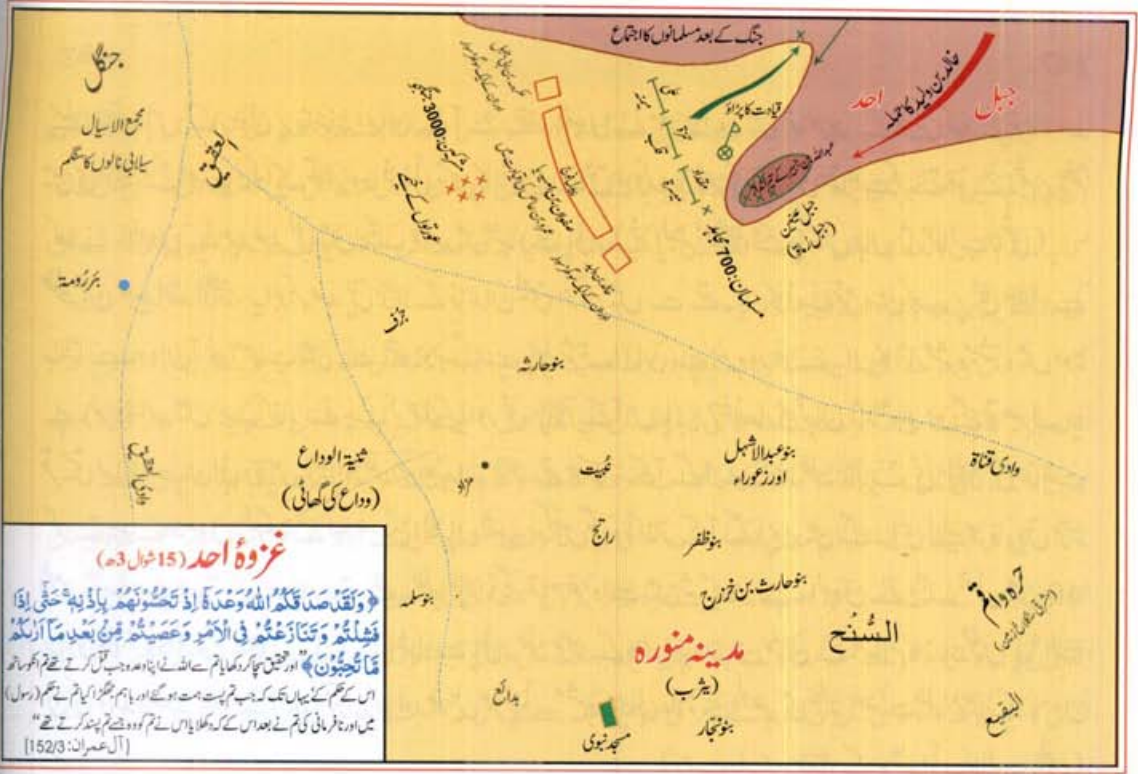 جنگ کے بعد مسلمانوں کا اجتماع
خالد بن ولید کا حملہ
جبل
احد
قیادت کا پڑاؤ
میمنہ
قلب
میسرہ
مسلمان: 700 مجاہد
(جبل رماۃ)
مشرکین: 3000 جنگجو
عورتوں کے خیمے
جنگل
مجمع الاسیال
سیلابی نالوں کا سنگم
العقیق
بئر رومۃ
جرف
بنو حارثہ
وادی العقیق
ثنیۃ الوداع
(وداع کی گھاٹی)
بنو عبدالاشہل
اور زعوراء
وادی قناۃ
راتج
بنو ظفر
بنو حارث بن خزرج
بنو سلمہ
السُّنْح
حرہ واقم
مدینہ منورہ
(یثرب)
بدائع
مسجد نبوی
بنو نجار
البقیع
غزوۂ احد (15 شوال 3ھ)
﴿وَلَقَدْ صَدَقَكُمُ اللّٰهُ وَعْدَهٗۤ اِذْ تَحُسُّوْنَهُمْ بِاِذْنِهٖ ۚ حَتّٰۤى اِذَا
فَشِلْتُمْ وَتَنَازَعْتُمْ فِى الْاَمْرِ وَعَصَيْتُمْ مِّنْۢ بَعْدِ مَاۤ اَرٰىكُمْ
مَّا تُحِبُّوْنَ﴾ "اور تحقیق سچا کر دکھایا تم سے اللہ نے اپنا وعدہ جب قتل کرتے تھے تم انکو ساتھ
اس کے حکم کے یہاں تک کہ جب تم پست ہمت ہو گئے اور باہم جھگڑا کیا تم نے حکم (رسول)
میں اور نافرمانی کی تم نے بعد اس کے کہ دکھلایا اس نے تم کو وہ جسے تم پسند کرتے تھے"
[آل عمران: 152/3]